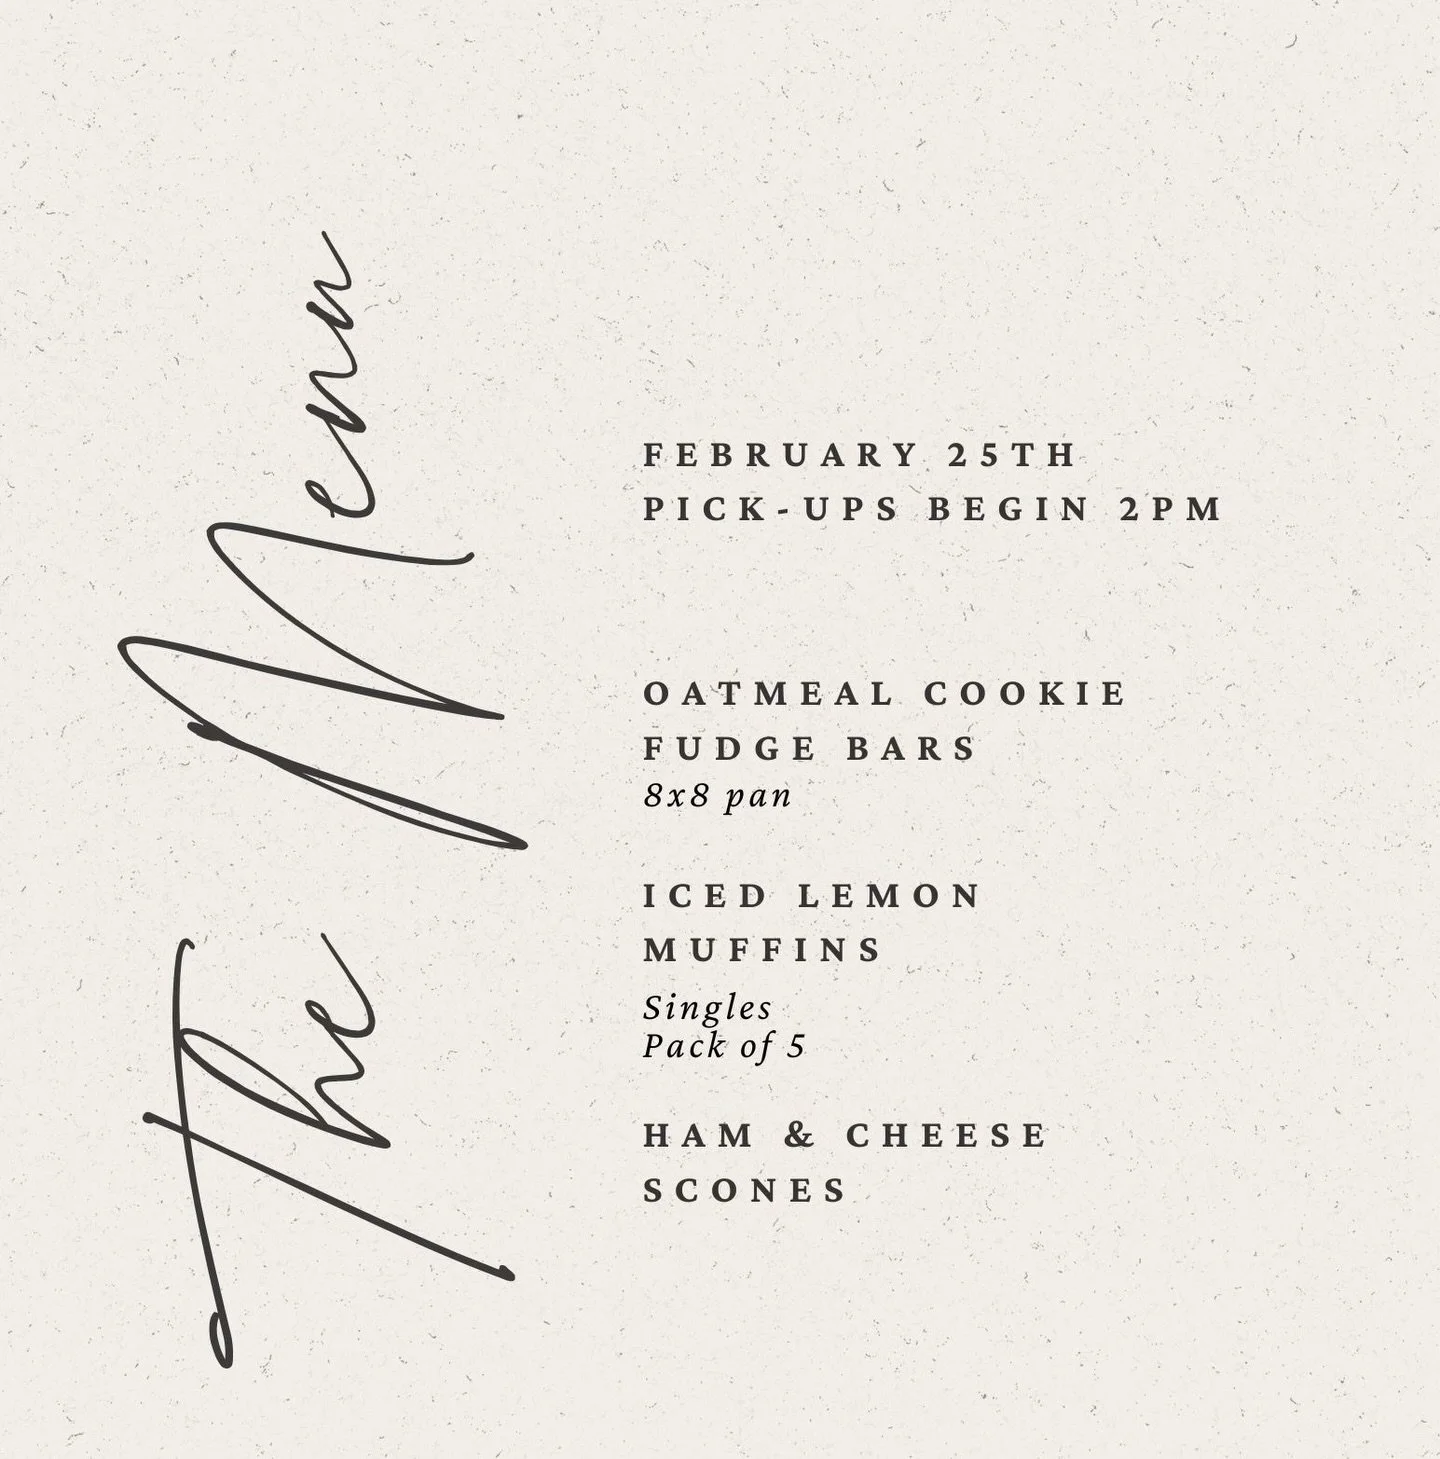 The Menu
FEBRUARY 25TH
PICK-UPS BEGIN 2PM
OATMEAL COOKIE
FUDGE BARS
8x8 pan
ICED LEMON
MUFFINS
Singles
Pack of 5
HAM & CHEESE
SCONES